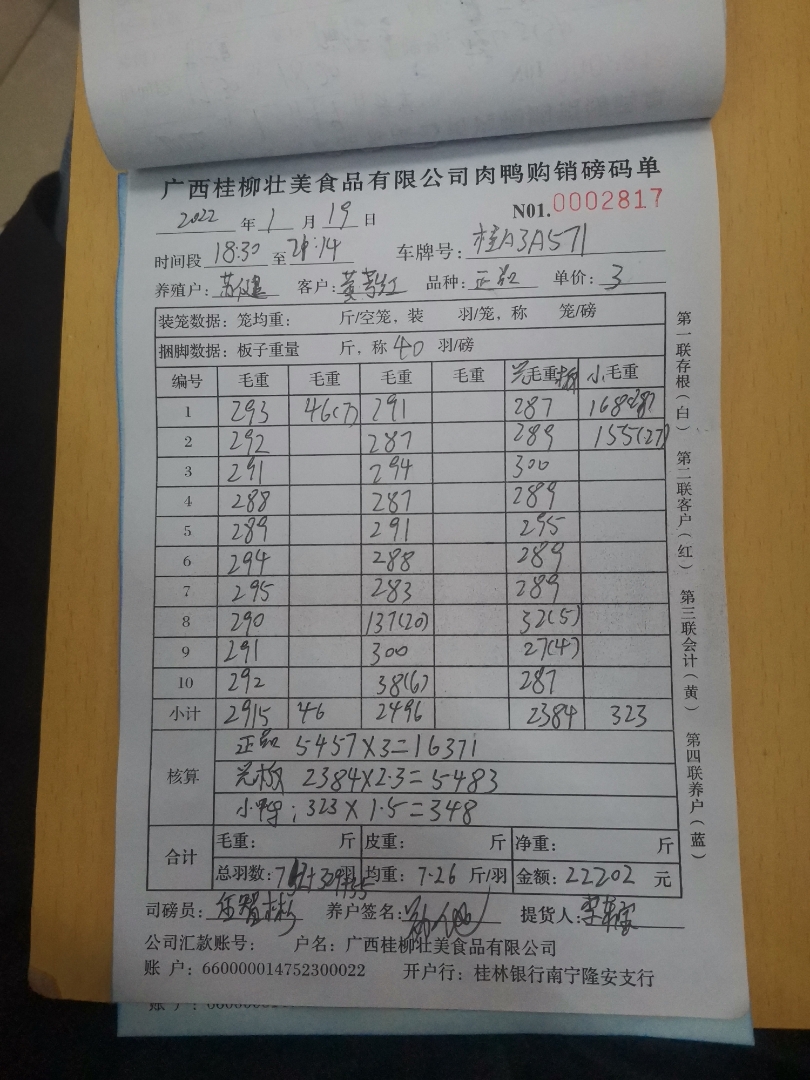 广西桂柳壮美食品有限公司肉鸭购销磅码单
2022 年 1 月 19 日 N01.0002817
时间段 18:30 至 21:14 车牌号: 桂A3A571
养殖户: 客户: 品种: 正品 单价: 3
装笼数据: 笼均重: 斤/空笼, 装 羽/笼, 称 笼/磅
捆脚数据: 板子重量 斤, 称 40 羽/磅
编号 毛重 毛重 毛重 毛重 毛重 小毛重
1 293 46(7) 291 287 168(28)
2 292 287 289 155(27)
3 291 294 300
4 288 287 289
5 289 291 295
6 294 288 289
7 295 283 289
8 290 137(20) 32(5)
9 291 300 27(4)
10 292 38(6) 287
小计 2915 46 2496 2384 323
核算
正品 5457×3=16371
2384×2.3=5483
小鸭: 323×1.5=348
合计
毛重: 斤 皮重: 斤 净重: 斤
总羽数: 羽 均重: 7.26 斤/羽 金额: 22202 元
司磅员: 养户签名: 提货人:
公司汇款账号: 户名: 广西桂柳壮美食品有限公司
账 户: 660000014752300022 开户行: 桂林银行南宁隆安支行
第一联存根(白) 第二联客户(红) 第三联会计(黄) 第四联养户(蓝)